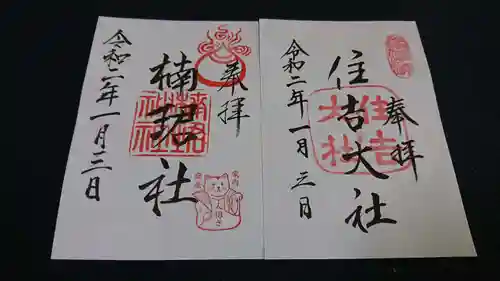 奉拝
住吉大社
令和二年一月三日
住吉大社
奉拝
楠珺社
令和二年一月三日